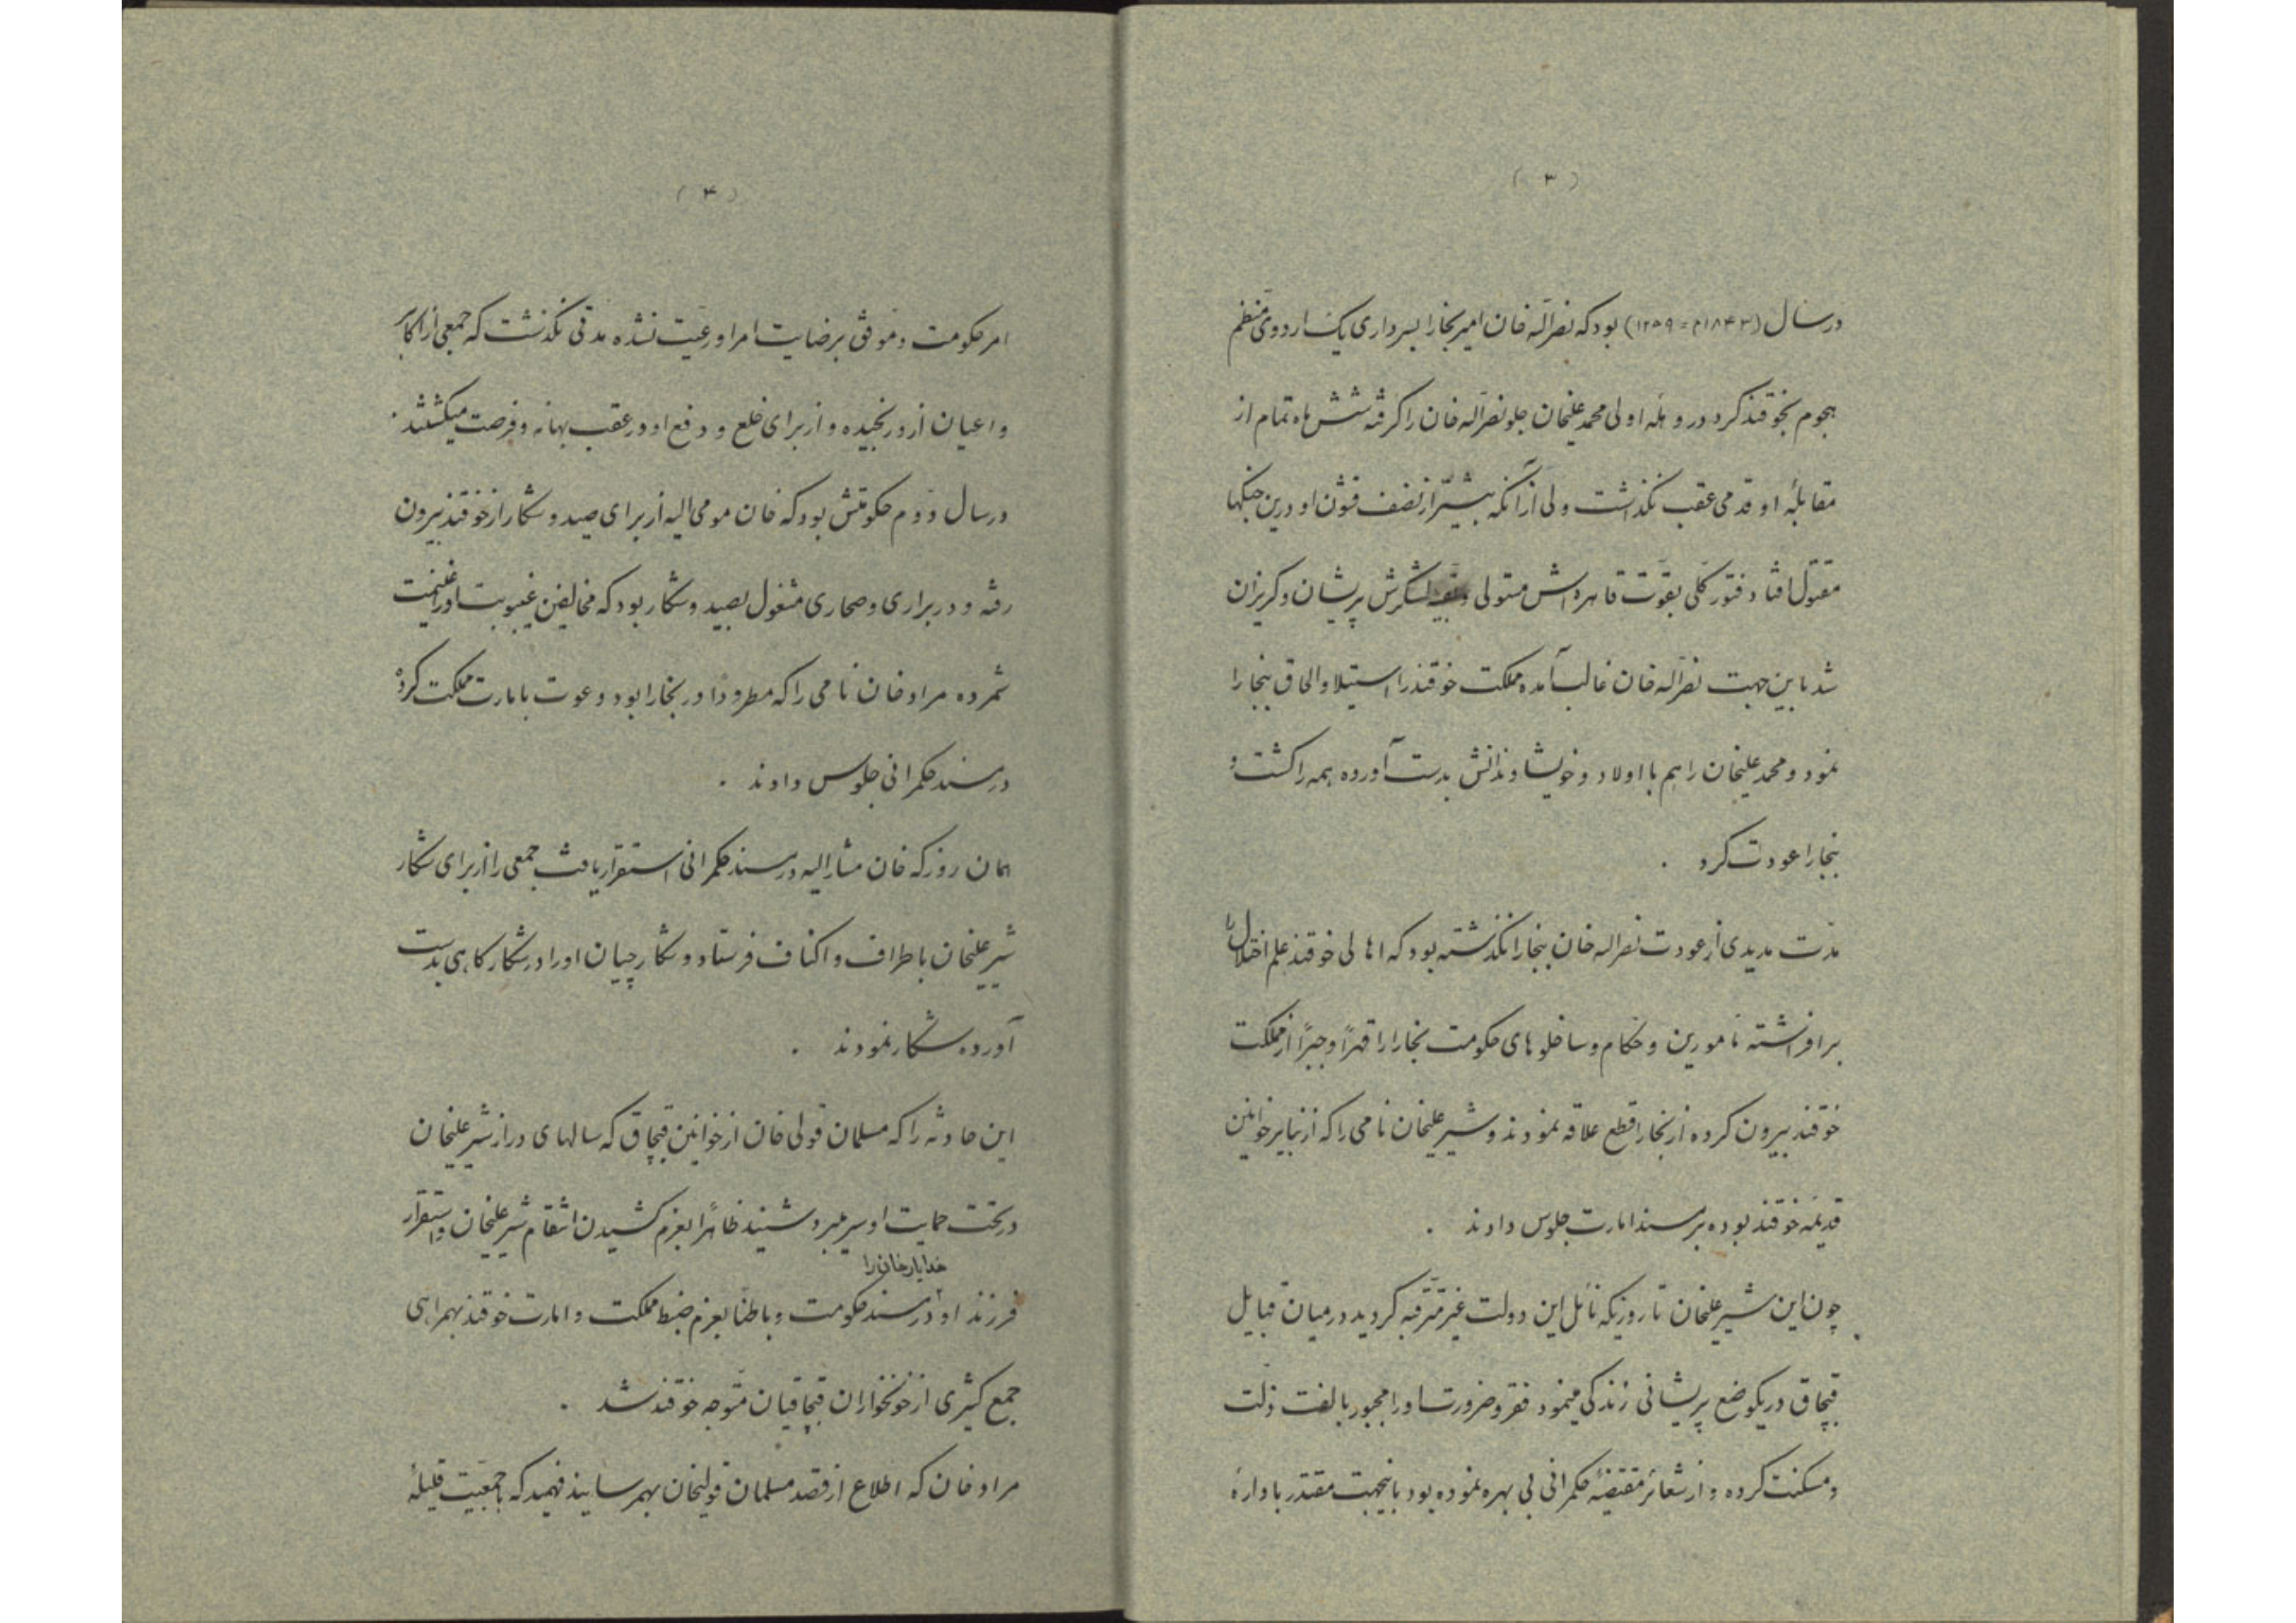 ( ۳ )
در سال (۱۸۴۳م = ۱۲۵۹) بود که نصراله خان امیر بخارا بسرداری یک اردوی منظم
هجوم بخوقند کرد در وهلهٔ اولی محمد علیخان جلو نصراله خان را گرفته شش ماه تمام از
مقابلهٔ او قدمی عقب نگذاشت ولی از آنکه بیشتر از نصف قشون او درین جنگها
مقتول افتاد فتور کلی بقوت قاهره‌اش مستولی و بقیه لشکرش پریشان و گریزان
شد باین جهت نصراله خان غالب آمده مملکت خوقند را استیلا و الحاق ببخارا
نمود و محمد علیخان را هم با اولاد و خویشاوندانش بدست آورده همه را کشت و
ببخارا عودت کرد .
مدت مدیدی از عودت نصراله خان ببخارا نگذشته بود که اهالی خوقند علم اختلال را
برافراشته مأمورین و حکام و ساخلوهای حکومت بخارا را قهراً و جبراً از مملکت
خوقند بیرون کرده از بخارا قطع علاقه نمودند و شیر علیخان نامی را که از نبایر خوانین
قدیمه خوقند بوده بر مسند امارت جلوس دادند .
چون این شیر علیخان تا روزیکه نائل این دولت غیر مترقبه گردید در میان قبایل
قبچاق در یکوضع پریشانی زندگی مینمود فقر و ضرورت او را مجبور بالفت ذلت
و مسکنت کرده و از شعائر مقتضیهٔ حکمرانی بی بهره نموده بود باینجهت مقتدر بادارهٔ
( ۴ )
امر حکومت و موفق برضایت امرا و رعیت نشده مدتی نگذشت که جمعی از اکابر
و اعیان ازو رنجیده و از برای خلع و دفع او در عقب بهانه و فرصت میگشتند .
در سال دوم حکومتش بود که خان مومی الیه از برای صید و شکار از خوقند بیرون
رفته و در براری و صحاری مشغول بصید و شکار بود که مخالفین غیبوبت او را غنیمت
شمرده مراد خان نامی را که مطروداً در بخارا بود دعوت بامارت مملکت کرده
در مسند حکمرانی جلوس دادند .
همان روز که خان مشارالیه در مسند حکمرانی استقرار یافت جمعی را از برای شکار
شیر علیخان باطراف و اکناف فرستاد و شکارچیان او را در شکارگاهی بدست
آورده شکار نمودند .
این حادثه را که مسلمان قولی خان از خوانین قبچاق که سالهای دراز شیر علیخان
در تحت حمایت او سر میبرد شنید ظاهراً بعزم کشیدن انتقام شیر علیخان و استقرار
خدایار خان را
فرزند او در مسند حکومت و باطناً بعزم ضبط مملکت و امارت خوقند بهمراهی
جمع کثیری از خونخواران قبچاقیان متوجه خوقند شد .
مراد خان که اطلاع از قصد مسلمان قولیخان بهمرسانید فهمید که با جمعیت قلیلهٔ